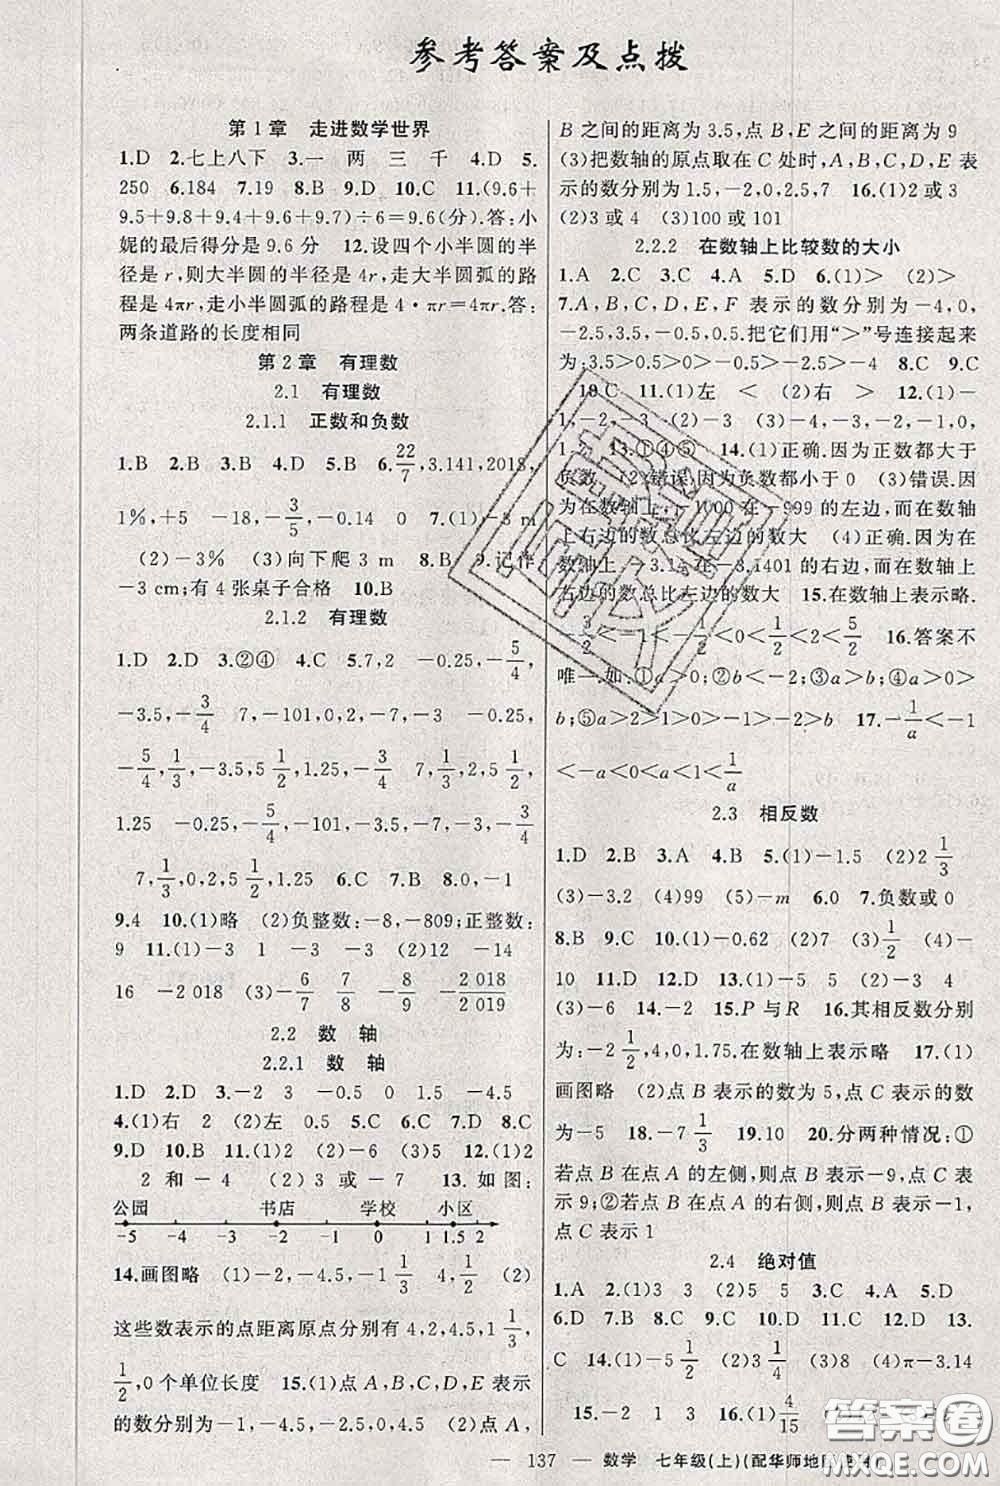 参考答案及点拨
第1章 走进数学世界
1.D 2.七上八下 3.一 两 三 千 4.D 5.
250 6.184 7.19 8.B 9.D 10.C 11.(9.6+
9.5+9.8+9.4+9.6+9.7)÷6=9.6(分).答:小
妮的最后得分是9.6分 12.设四个小半圆的半
径是r,则大半圆的半径是4r,走大半圆弧的路
程是4πr,走小半圆弧的路程是4·πr=4πr.答:
两条道路的长度相同
第2章 有理数
2.1 有理数
2.1.1 正数和负数
1.B 2.B 3.B 4.D 5.B 6.22/7,3.141,2018,
1%,+5 -18,-3/5,-0.14 0 7.(1)-3 m
(2)-3% (3)向下爬3 m 8.B 9.记作
-3 cm;有4张桌子合格 10.B
2.1.2 有理数
1.D 2.D 3.②④ 4.C 5.7,2 -0.25,-5/4,
-3.5,-3/4 7,-101,0,2,-7,-3 -0.25,
-5/4,1/3,-3.5,5 1/2,1.25,-3/4 7,1/3,2,5 1/2,
1.25 -0.25,-5/4,-101,-3.5,-7,-3,-3/4
7,1/3,0,2,5 1/2,1.25 6.C 7.B 8.0,-1
9.4 10.(1)略 (2)负整数:-8,-809;正整数:
9 11.(1)-3 1 -3 -3 (2)12 -14
16 -2 018 (3)-6/7 7/8 -8/9 -2 018/2 019
2.2 数 轴
2.2.1 数 轴
1.D 2.D 3.-2 3 -0.5 0 1.5 -4.5
4.(1)右 2 (2)左 0.5 5.C 6.C 7.D 8.C
9.D 10.B 11.(1)2 (2)6 (3)5 12.(1)2
2和-4 (2)3或-7 13.如图:
公园 书店 学校 小区
-5 -4 -3 -2 -1 0 1 1.5 2
14.画图略 (1)-2,-4.5,-1 1/3 4,1/2 (2)
这些数表示的点距离原点分别有4,2,4.5,1 1/3,
1/2,0个单位长度 15.(1)点A,B,C,D,E表示
的数分别为-1,-4.5,-2.5,0,4.5 (2)点A,
B之间的距离为3.5,点B,E之间的距离为9
(3)把数轴的原点取在C处时,A,B,C,D,E表
示的数分别为1.5,-2,0,2.5,7 16.(1)2或3
(2)3或4 (3)100或101
2.2.2 在数轴上比较数的大小
1.A 2.C 3.C 4.A 5.D 6.(1)> (2)>
7.A,B,C,D,E,F表示的数分别为-4,0,
-2.5,3.5,-0.5,0.5.把它们用“>”号连接起来
为:3.5>0.5>0>-0.5>-2.5>-4 8.C 9.C
10.C 11.(1)左 < (2)右 > 12.(1)-
1,-2,-3 (2)0 (3)-4,-3,-2,-1,0,
13.①④⑤ 14.(1)正确.因为正数都大于
负数 (2)错误.因为负数都小于0 (3)错误.因
为在数轴上,-1000在-999的左边,而在数轴
上右边的数总比左边的数大 (4)正确.因为在
数轴上,-3.14在-3.1401的右边,而在数轴上
右边的数总比左边的数大 15.在数轴上表示略.
-3/2<-1<-1/2<0<1/2<2<5/2 16.答案不
唯一.如:①a>0;②b<-2;③a>b;④a>0>
b;⑤a>2>1>0>-1>-2>b 17.-1/a<-1
<-a<0<a<1<1/a
2.3 相反数
1.D 2.B 3.A 4.B 5.(1)-1.5 (2)2 1/3
(3)-3.2 (4)99 (5)-m 6.0 7.负数或0
8.B 9.C 10.(1)-0.62 (2)7 (3)1/2 (4)-
10 11.D 12.D 13.(1)-5 5 (2)-3 4
(3)-6 14.-2 15.P与R 16.其相反数分别
为:-2 1/2,4,0,1.75.在数轴上表示略 17.(1)
画图略 (2)点B表示的数为5,点C表示的数
为-5 18.-7 1/3 19.10 20.分两种情况:①
若点B在点A的左侧,则点B表示-9,点C表
示9;②若点B在点A的右侧,则点B表示-1,
点C表示1
2.4 绝对值
1.A 2.(1)3 3 (2)5 5 3.C 4.A 5.D
6.D 7.B 8.(1)< (2)> 9.C 10.D 12.D 13.
C 14.(1)-5 1/2 (2)3 1/4 (3)8 (4)π-3.14
15.-2 1 3 16.(1)4/15
— 137 — 数学 七年级(上)(配华师地
答案卷